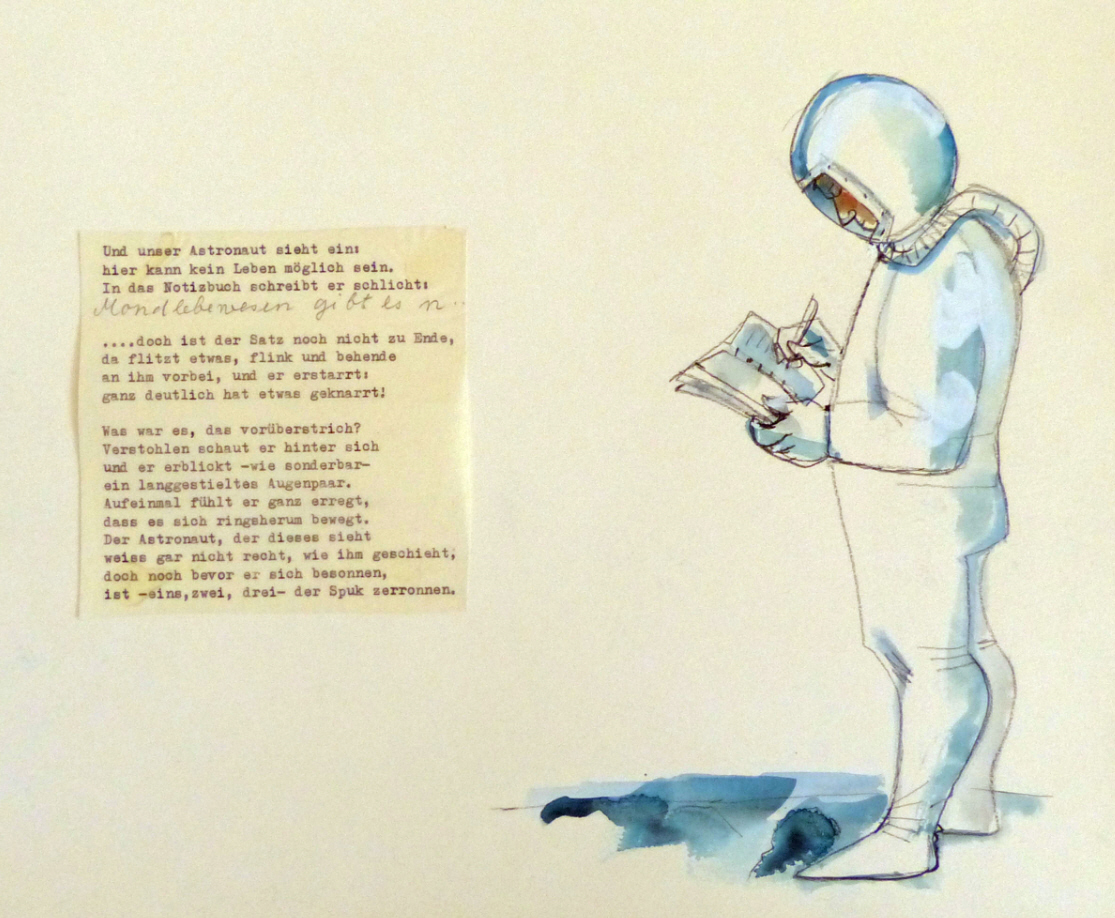 Und unser Astronaut sieht ein:
hier kann kein Leben möglich sein.
In das Notizbuch schreibt er schlicht:
Mondlebewesen gibt es n..
....doch ist der Satz noch nicht zu Ende,
da flitzt etwas, flink und behende
an ihm vorbei, und er erstarrt:
ganz deutlich hat etwas geknarrt!
Was war es, das vorüberstrich?
Verstohlen schaut er hinter sich
und er erblickt -wie sonderbar-
ein langgestieltes Augenpaar.
Aufeinmal fühlt er ganz erregt,
dass es sich ringsherum bewegt.
Der Astronaut, der dieses sieht
weiss gar nicht recht, wie ihm geschieht,
doch noch bevor er sich besonnen,
ist -eins,zwei, drei- der Spuk zerronnen.